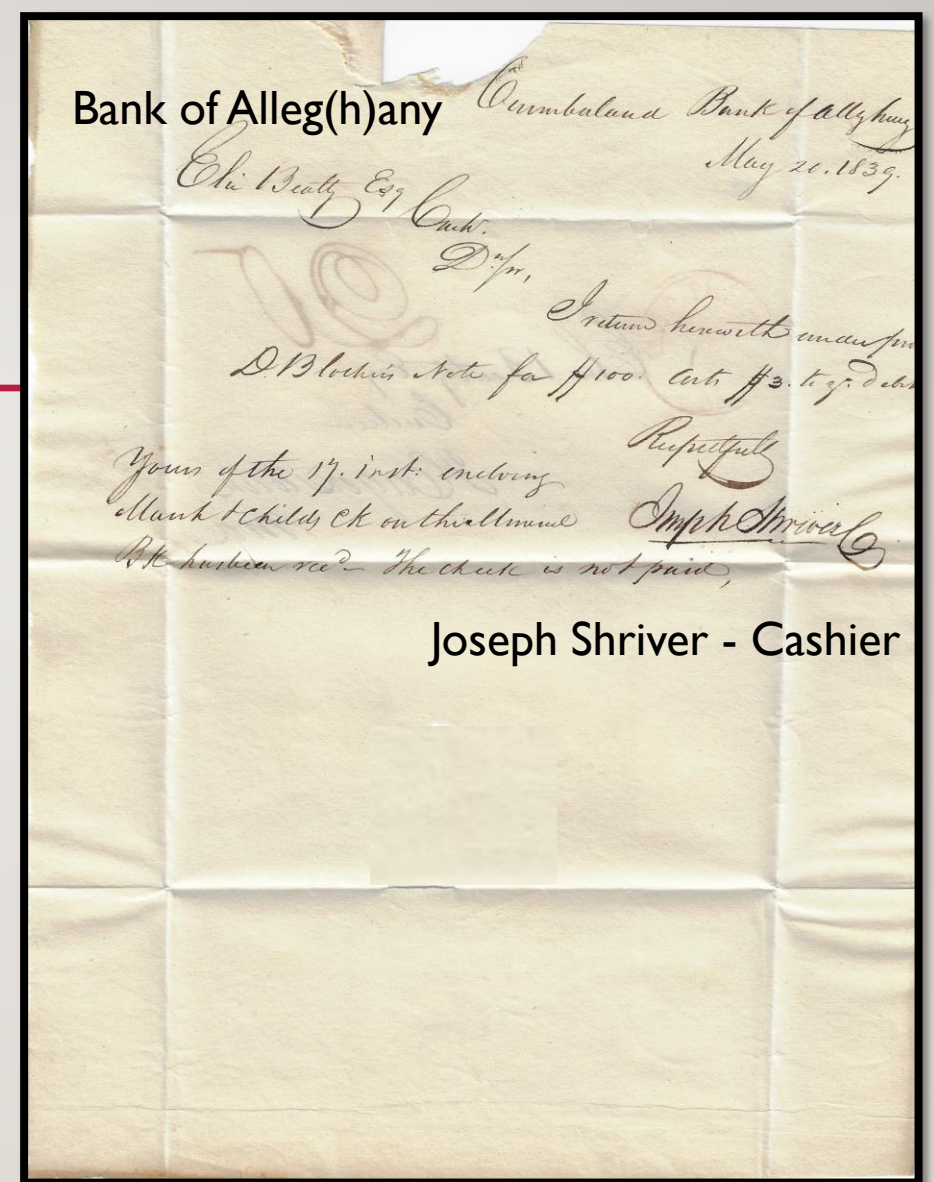 Bank of Alleg(h)any
Cumbaland Bank of Alleghany
May 20. 1839.
Eli Beatty Esq Cash.
D. Sir,
I return herewith under pro
D Blocher's Note for $100. Costs $3. to yr. debt
Respectfull
Joseph Shriver C
Yours of the 17. inst: enclosing
& Childs Ck on the Mineral
Bk has been recd - The check is not paid,
Joseph Shriver - Cashier